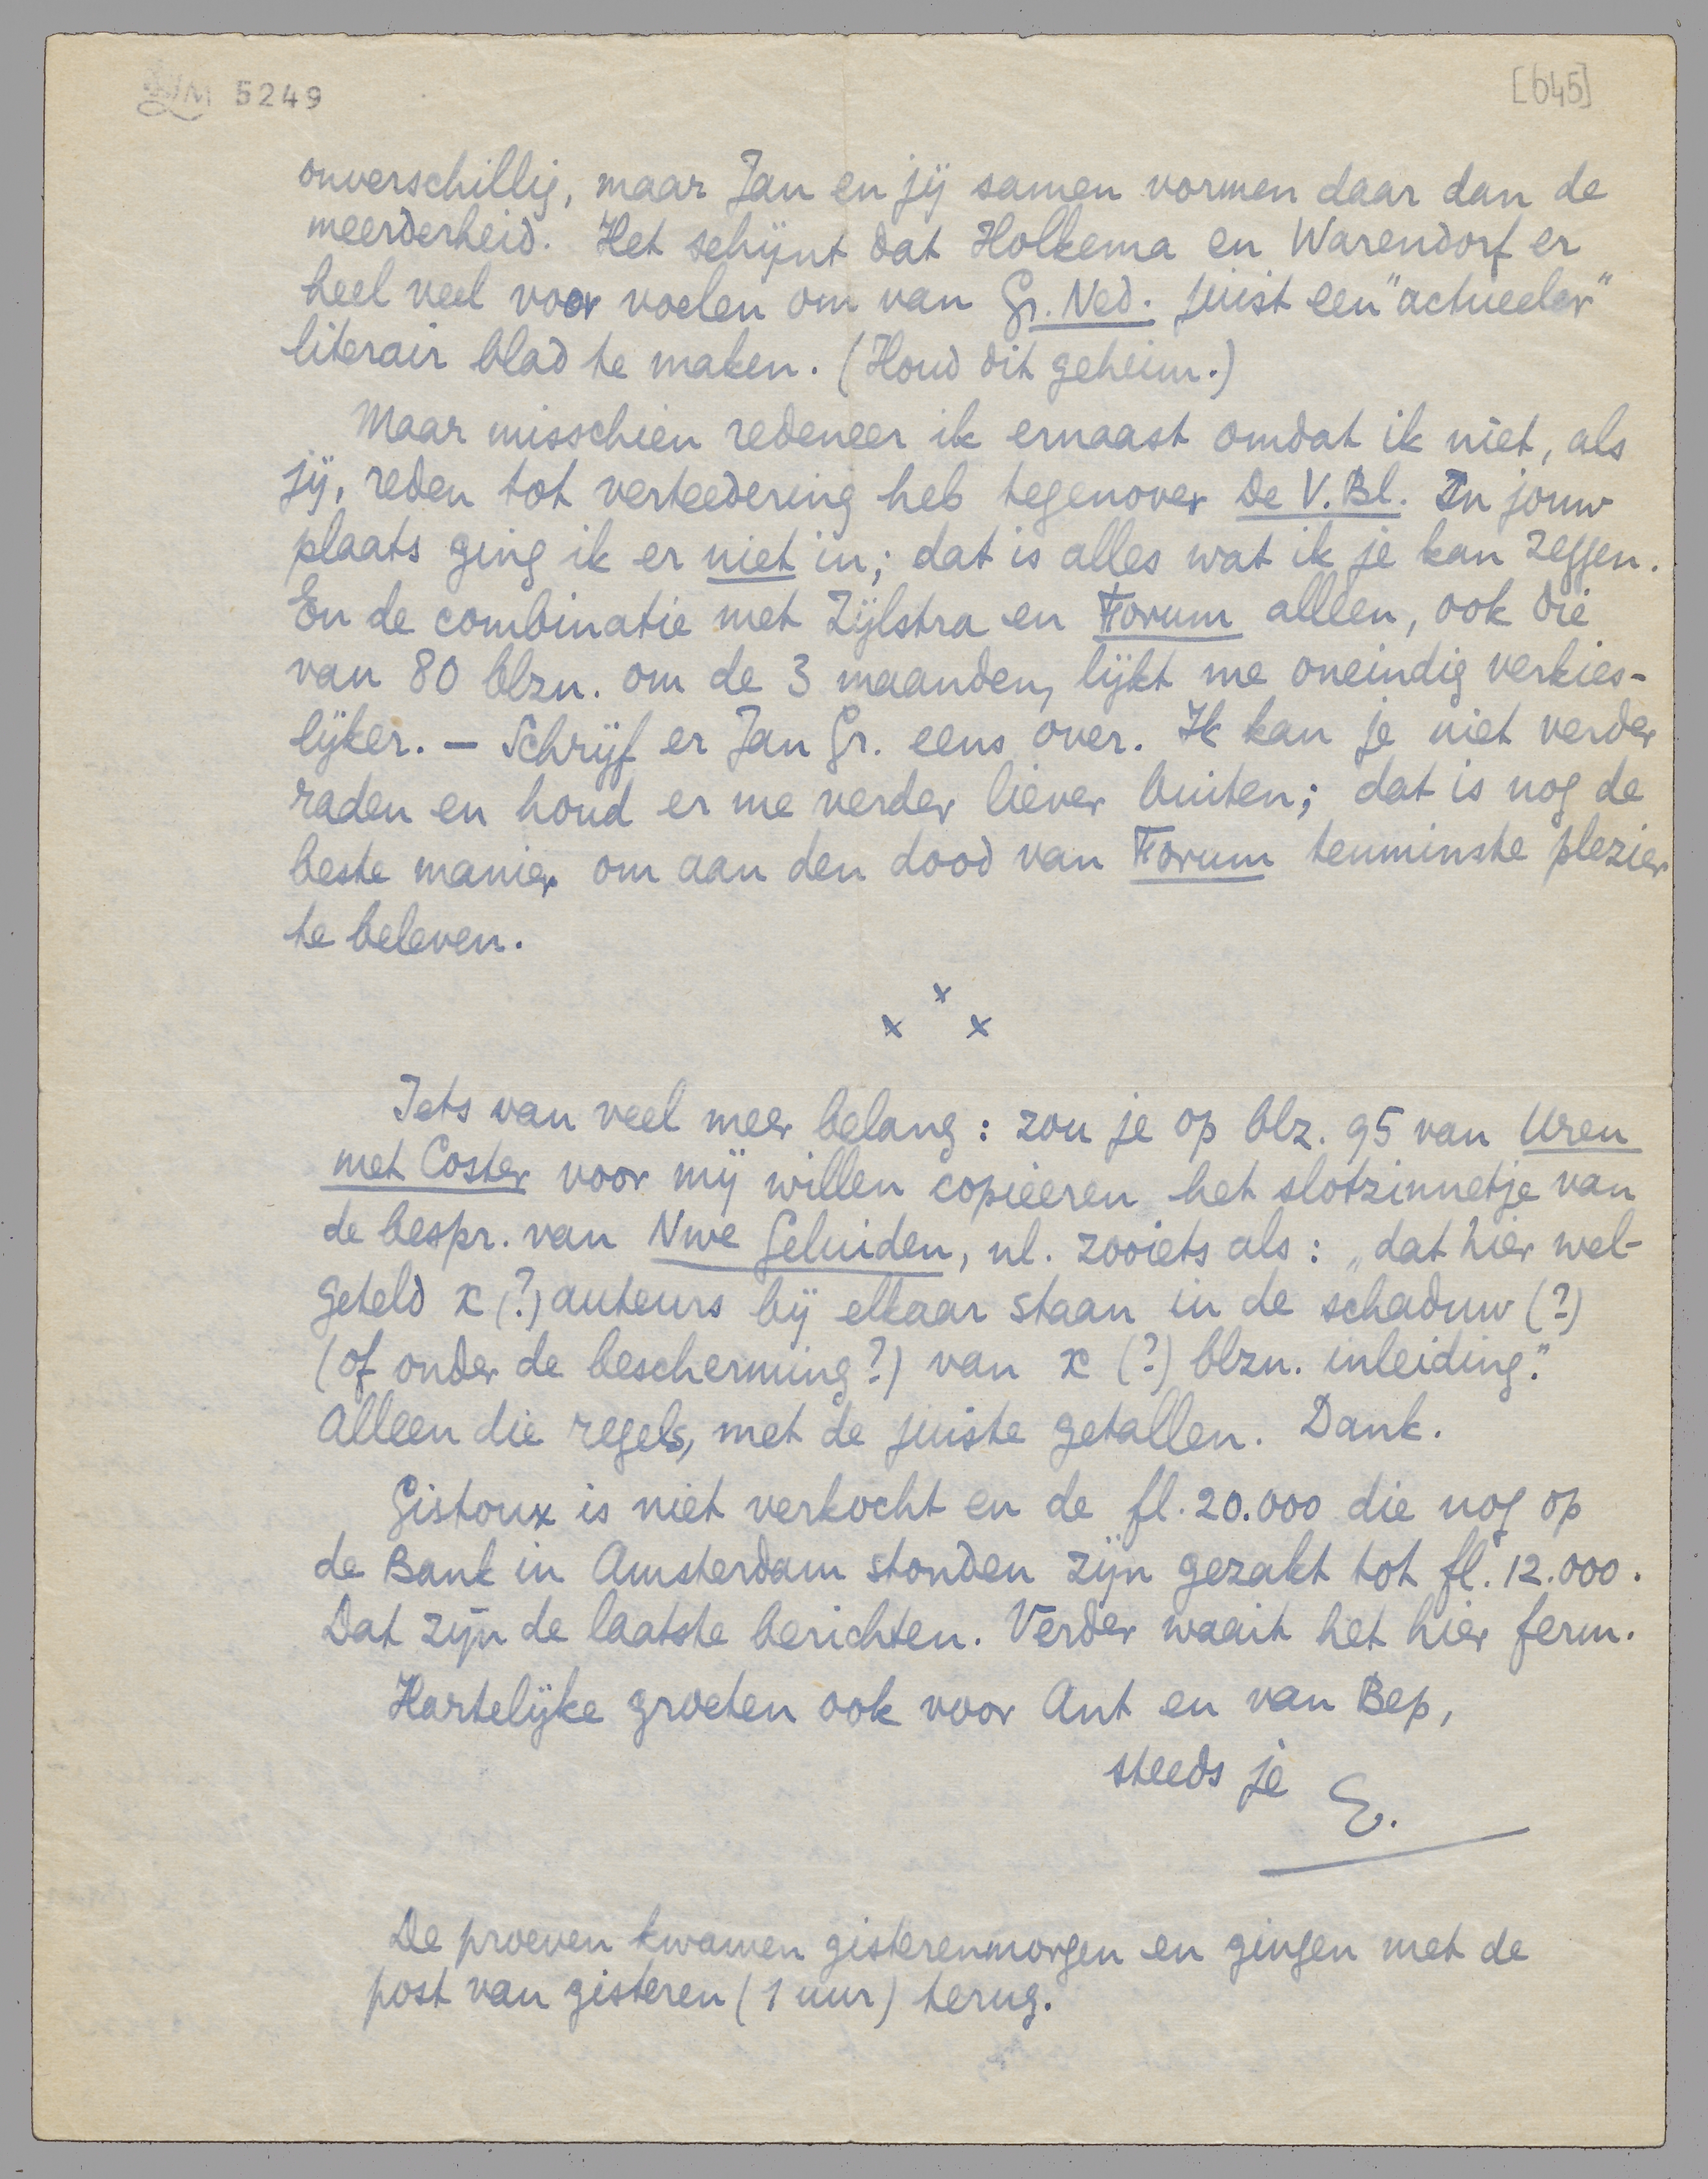 LM 5249
[645]
onverschillig, maar Jan en jij samen vormen daar dan de
meerderheid. Het schijnt dat Holkema en Warendorf er
heel veel voor voelen om van Gr. Ned. juist een "actueeler"
literair blad te maken. (Houd dit geheim.)
Maar misschien redeneer ik ernaast omdat ik niet, als
jij, reden tot verteedering heb tegenover De V. Bl. In jouw
plaats ging ik er niet in; dat is alles wat ik je kan zeggen.
En de combinatie met Zijlstra en Forum alleen, ook die
van 80 blzn. om de 3 maanden, lijkt me oneindig verkies-
lijker. — Schrijf er Jan Gr. eens over. Ik kan je niet verder
raden en houd er me verder liever buiten; dat is nog de
beste manier om aan den dood van Forum tenminste plezier
te beleven.
x
x x
Iets van veel meer belang: zou je op blz. 95 van Uren
met Coster voor mij willen copieeren het slotzinnetje van
de bespr. van Nwe Geluiden, nl. zooiets als: „dat hier wel-
geteld x (?) auteurs bij elkaar staan in de schaduw (?)
(of onder de bescherming?) van x (?) blzn. inleiding."
Alleen die regels, met de juiste getallen. Dank.
Gistoux is niet verkocht en de fl. 20.000 die nog op
de Bank in Amsterdam stonden zijn gezakt tot fl. 12.000.
Dat zijn de laatste berichten. Verder waait het hier ferm.
Hartelijke groeten ook voor Ant en van Bep,
steeds je E.
De proeven kwamen gisterenmorgen en gingen met de
post van gisteren (1 uur) terug.